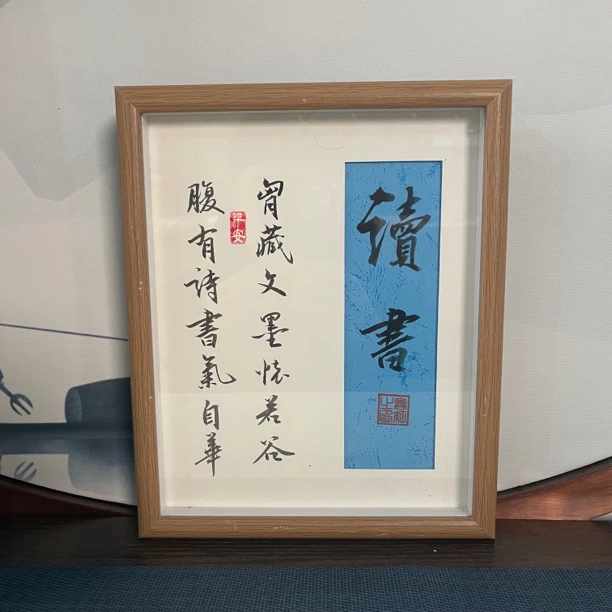 讀書
胷藏文墨懷若谷
腹有詩書氣自華
平安